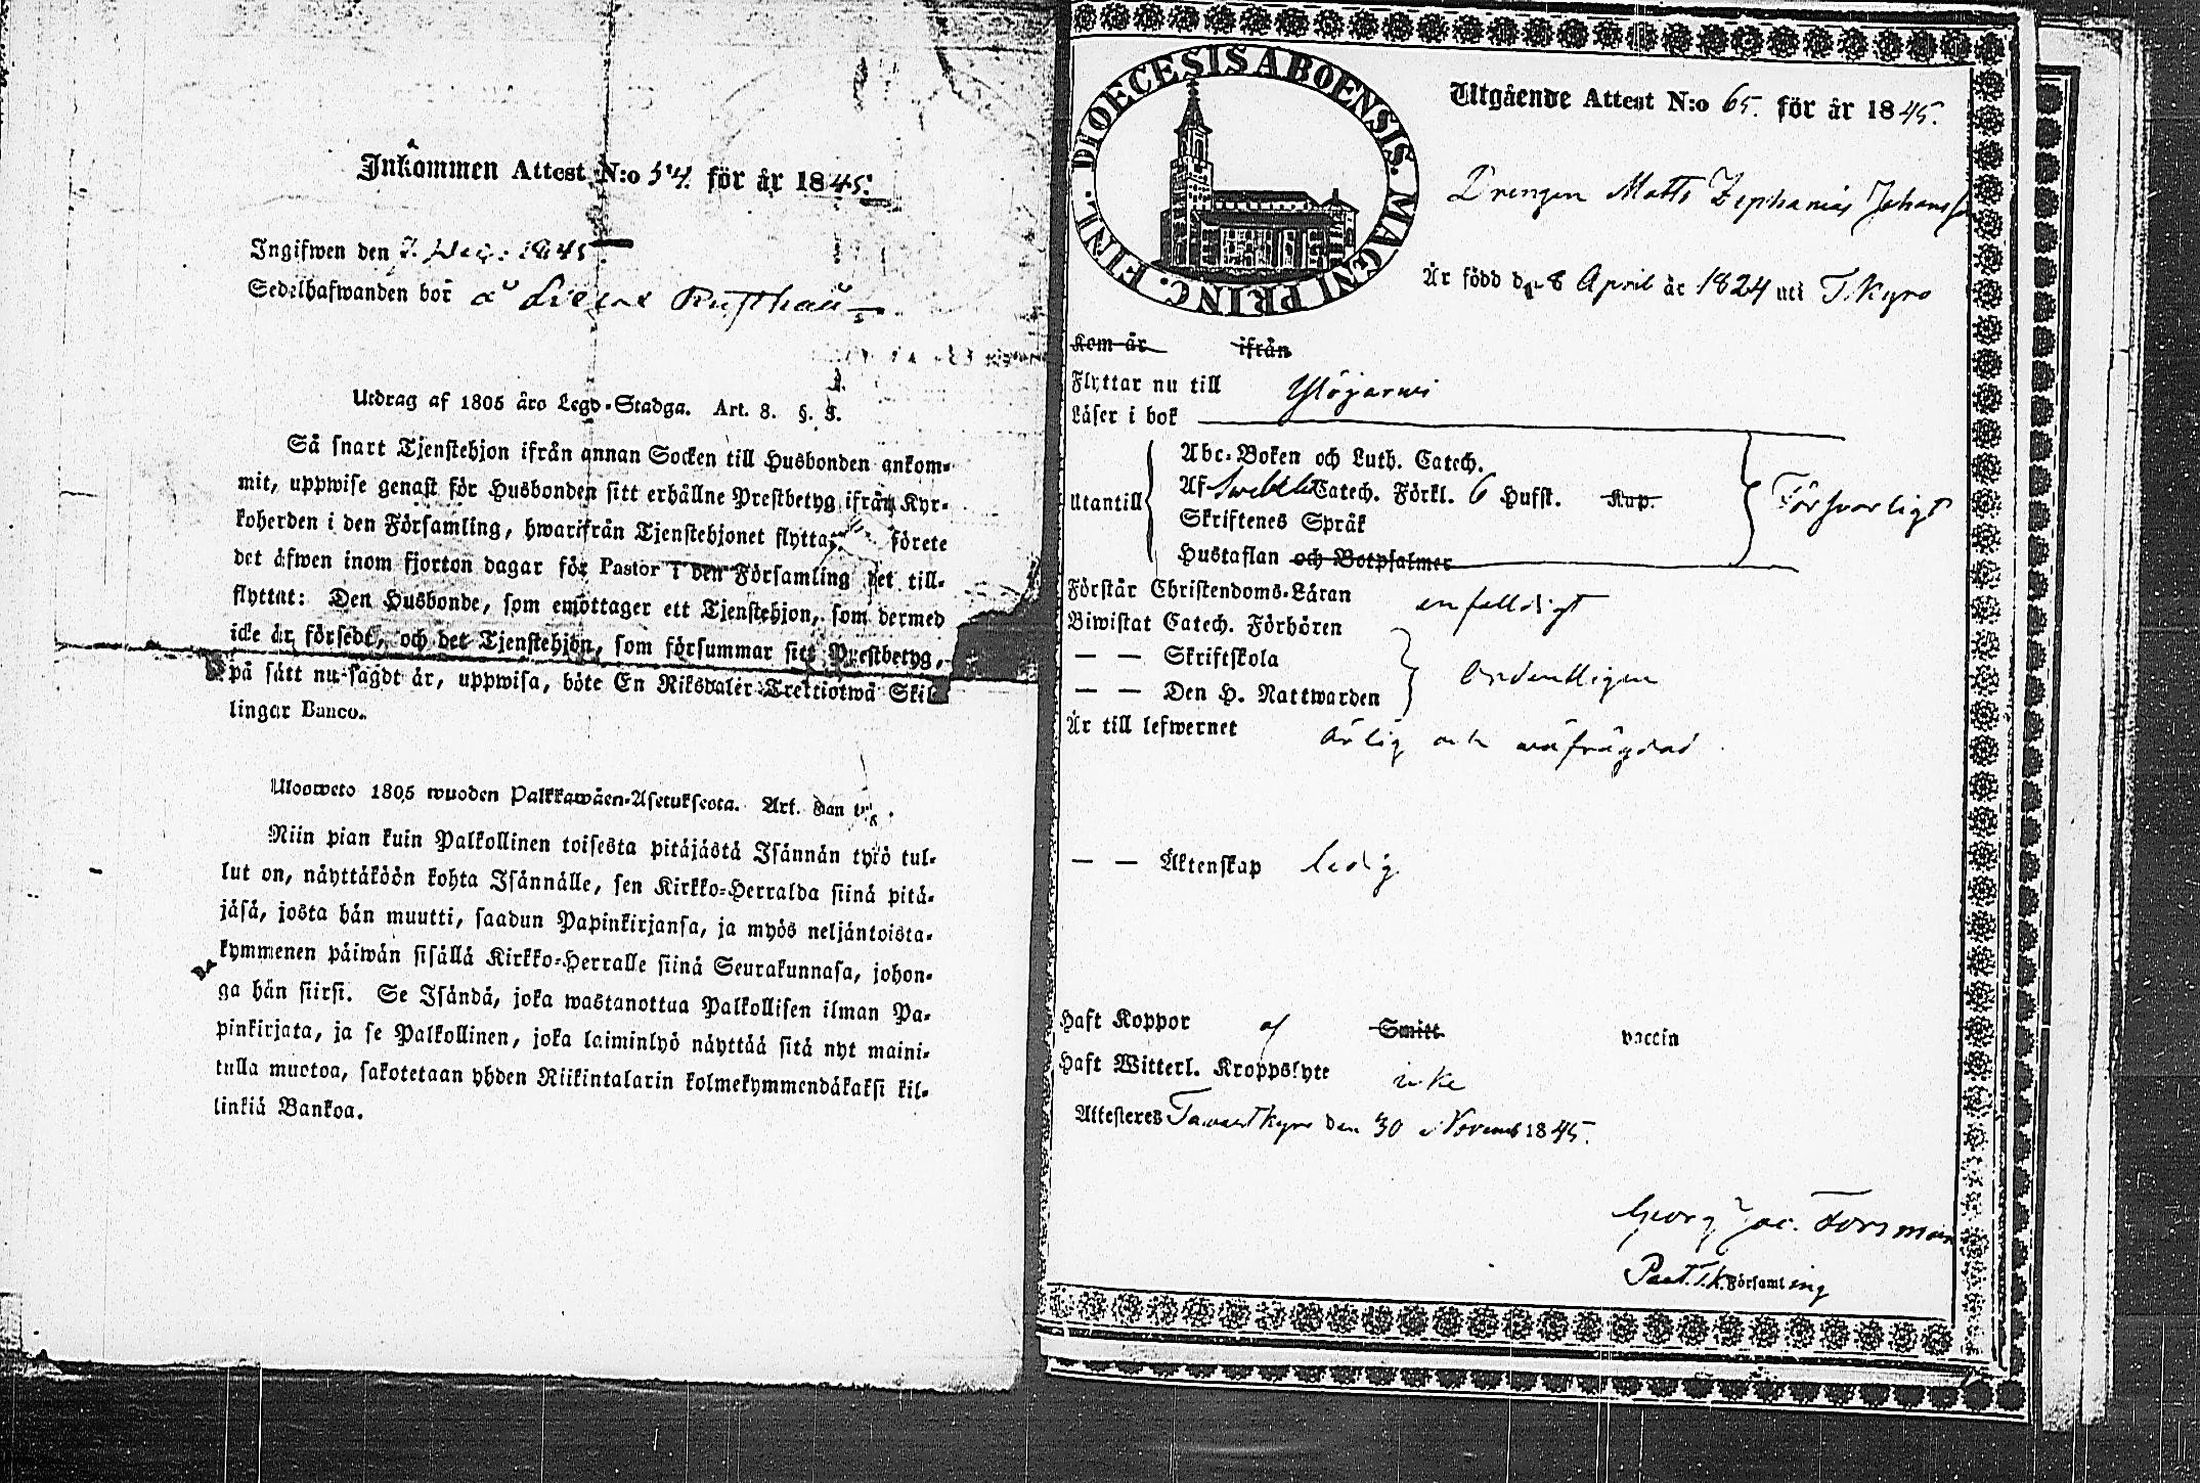 Inkommen Attest N:o 54. för år 1845.
Ingifwen den 7. Dec: 1845
Sedelhafwanden bor å
Utdrag af 1805 års Lego-Stadga. Art. 8. §.
Så snart Tjenstehjon ifrån annan Socken till Husbonden ankom-
mit, uppwise genast för Husbonden sitt erhållne Prestbetyg ifrån Kyr-
koherden i den Församling, hwarifrån Tjenstehjonet flyttat, förete
det äfwen inom fjorton dagar för Pastor i den Församling det till-
flyttat: Den Husbonde, som emottager ett Tjenstehjon, som dermed
icke är försedt, och det Tjenstehjon, som försummar sitt Prestbetyg,
på sätt nu sagdt är, uppwisa, böte En Riksdaler Trettiotwå Skil-
lingar Banco.
Ulosweto 1805 wuoden Palkkawäen-Asetuksesta. Art. 8an
Niin pian kuin Palkollinen toisesta pitäjästä Isännän tykö tul-
lut on, näyttäköön kohta Isännälle, sen Kirkko-Herralda siinä pitä-
jäsä, josta hän muutti, saadun Papinkirjansa, ja myös neljäntoista-
kymmenen päiwän sisällä Kirkko-Herralle siinä Seurakunnasa, johon-
ga hän siirsi. Se Isändä, joka wastanottaa Palkollisen ilman Pa-
pinkirjata, ja se Palkollinen, joka laiminlyö näyttää sitä nyt maini-
tulla muotoa, sakotetaan yhden Riikintalarin kolmekymmendäkaksi kil-
linkiä Bankoa.
DIOECESIS ABOENSIS. MAGNI PRINC. FINL.
Utgående Attest N:o 65. för år 1845.
Drengen Matts Zephanias Johansson
Är född d. 8 April år 1824 uti T.kyro
Kom år ifrån
Flyttar nu till Ylöjärwi
Läser i bok
Utantill
Abc-Boken och Luth. Catech.
Af Swebilii Catech. Förkl. 6 Hufst. Kap.
Skriftenes Språk
Hustaflan och Botpsalmer
Försvarligt
Förstår Christendoms-Läran enfaldigt
Biwistat Catech. Förhören
— — Skriftskola
— — Den H. Nattwarden
Ordentligen
Är till lefwernet ärlig och oäfrägdad
— — Äktenskap ledig
Haft Koppor af Smitt vaccin
Haft Witterl. Kroppslyte icke
Attesteres Tawastkyro den 30 Novemb 1845.
Georg Jac. Forsman
Past. T.k. Församling